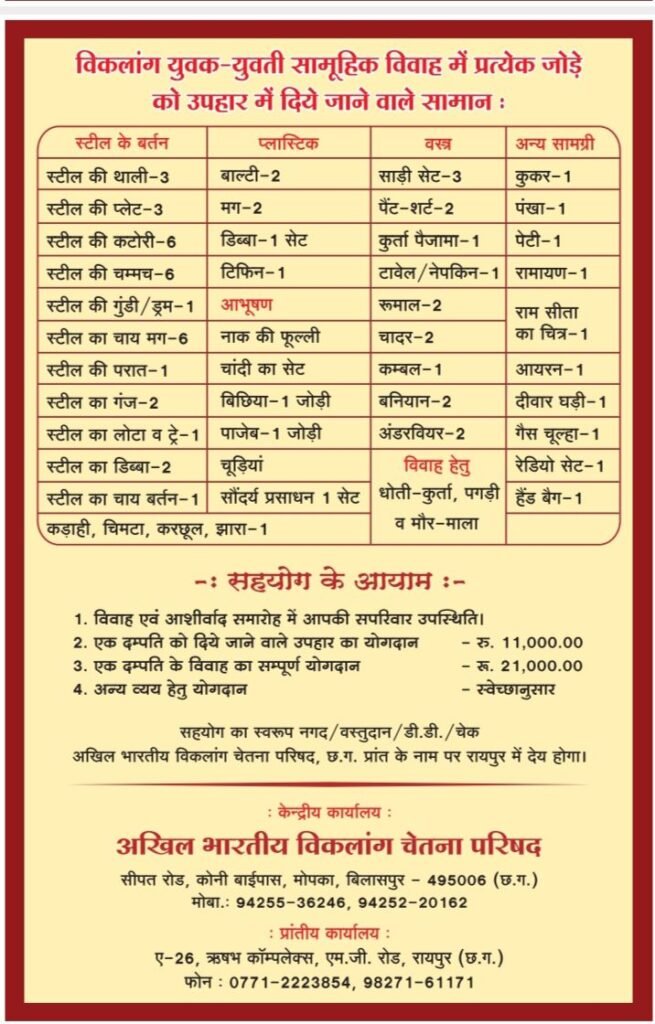 विकलांग युवक-युवती सामूहिक विवाह में प्रत्येक जोड़े
को उपहार में दिये जाने वाले सामान :
स्टील के बर्तन प्लास्टिक वस्त्र अन्य सामग्री
स्टील की थाली-3 बाल्टी-2 साड़ी सेट-3 कुकर-1
स्टील की प्लेट-3 मग-2 पैंट-शर्ट-2 पंखा-1
स्टील की कटोरी-6 डिब्बा-1 सेट कुर्ता पैजामा-1 पेटी-1
स्टील की चम्मच-6 टिफिन-1 टावेल/नेपकिन-1 रामायण-1
स्टील की गुंडी/ड्रम-1 आभूषण रूमाल-2 राम सीता
स्टील का चाय मग-6 नाक की फूल्ली चादर-2 का चित्र-1
स्टील की परात-1 चांदी का सेट कम्बल-1 आयरन-1
स्टील का गंज-2 बिछिया-1 जोड़ी बनियान-2 दीवार घड़ी-1
स्टील का लोटा व ट्रे-1 पाजेब-1 जोड़ी अंडरवियर-2 गैस चूल्हा-1
स्टील का डिब्बा-2 चूड़ियां विवाह हेतु रेडियो सेट-1
स्टील का चाय बर्तन-1 सौंदर्य प्रसाधन 1 सेट धोती-कुर्ता, पगड़ी हैंड बैग-1
कड़ाही, चिमटा, करछूल, झारा-1 व मौर-माला
-: सहयोग के आयाम :-
1. विवाह एवं आशीर्वाद समारोह में आपकी सपरिवार उपस्थिति।
2. एक दम्पति को दिये जाने वाले उपहार का योगदान - रु. 11,000.00
3. एक दम्पति के विवाह का सम्पूर्ण योगदान - रू. 21,000.00
4. अन्य व्यय हेतु योगदान - स्वेच्छानुसार
सहयोग का स्वरूप नगद/वस्तुदान/डी.डी./चेक
अखिल भारतीय विकलांग चेतना परिषद, छ.ग. प्रांत के नाम पर रायपुर में देय होगा।
: केन्द्रीय कार्यालय :
अखिल भारतीय विकलांग चेतना परिषद
सीपत रोड, कोनी बाईपास, मोपका, बिलासपुर - 495006 (छ.ग.)
मोबा.: 94255-36246, 94252-20162
: प्रांतीय कार्यालय :
ए-26, ऋषभ कॉम्पलेक्स, एम.जी. रोड, रायपुर (छ.ग.)
फोन : 0771-2223854, 98271-61171